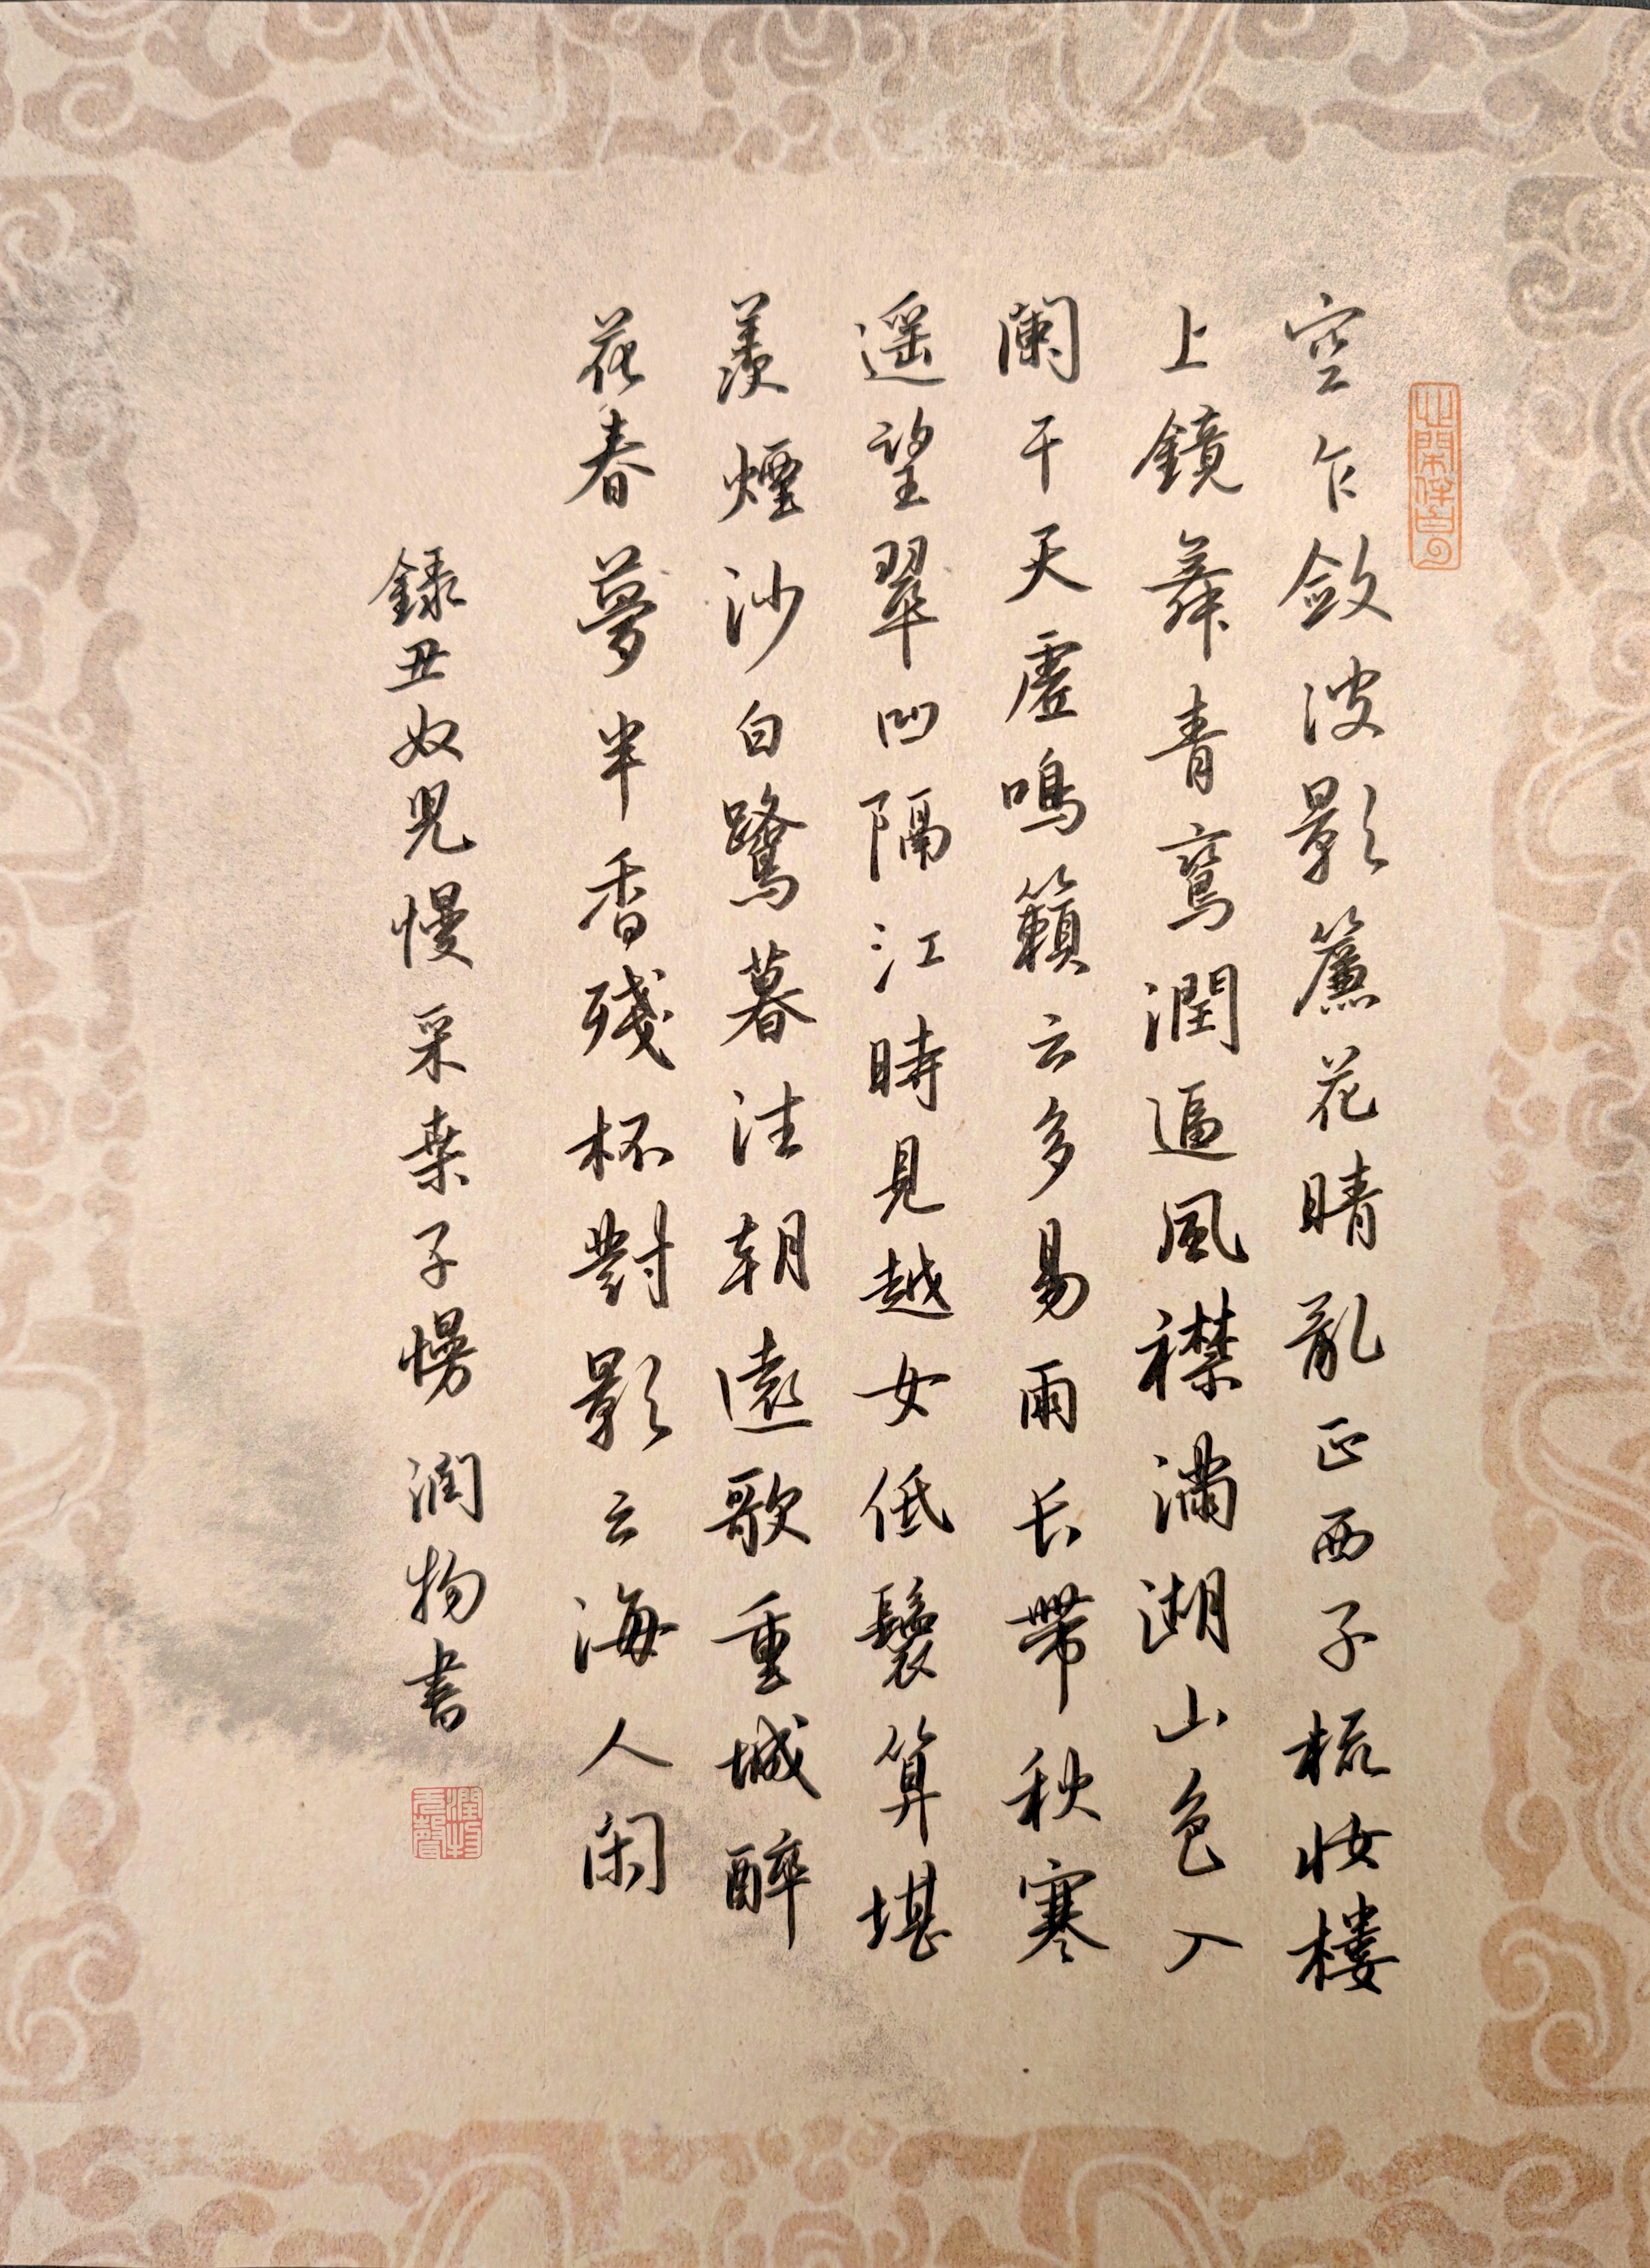 空乍斂波影簾花晴亂正西子梳妆樓
上鏡舞青鸞潤逼風襟滿湖山色入
闌干天虛鳴籟云多易雨长帶秋寒
遥望翠凹隔江時見越女低鬟算堪
羨煙沙白鷺暮往朝還歌重城醉
花春夢半香殘杯對影云海人闲
錄丑奴兒慢 采桑子慢 润物书